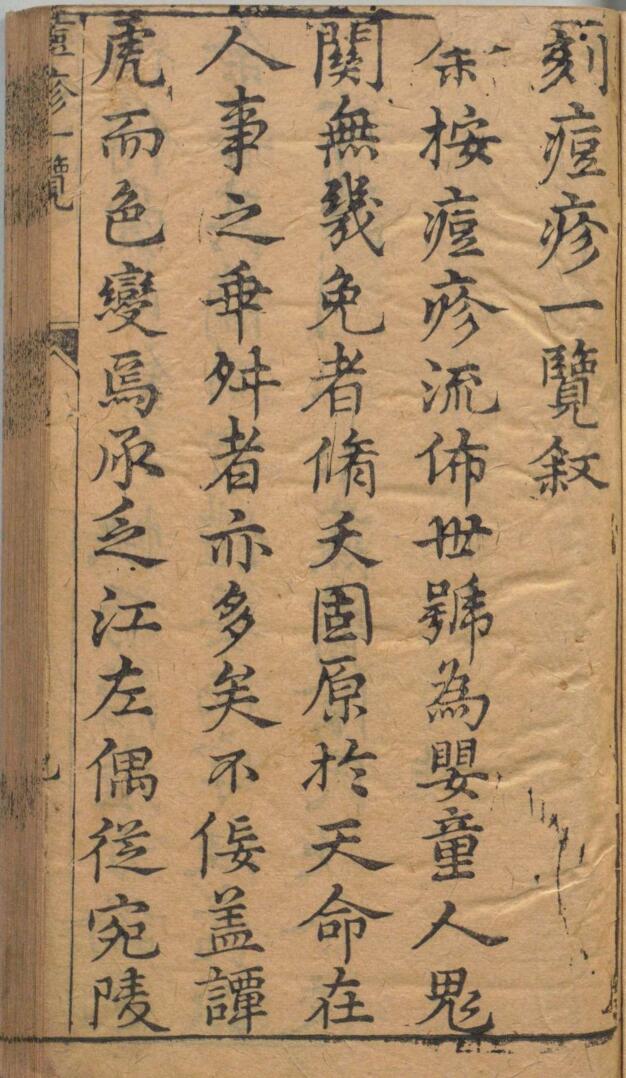 刻痘疹一覽叙
余按痘疹流佈世號為嬰童人鬼
關無幾免者脩夭固原於天命在
人事之乖舛者亦多矣不佞盖譚
虎而色變焉承乏江左偶從宛陵
痘疹一覽